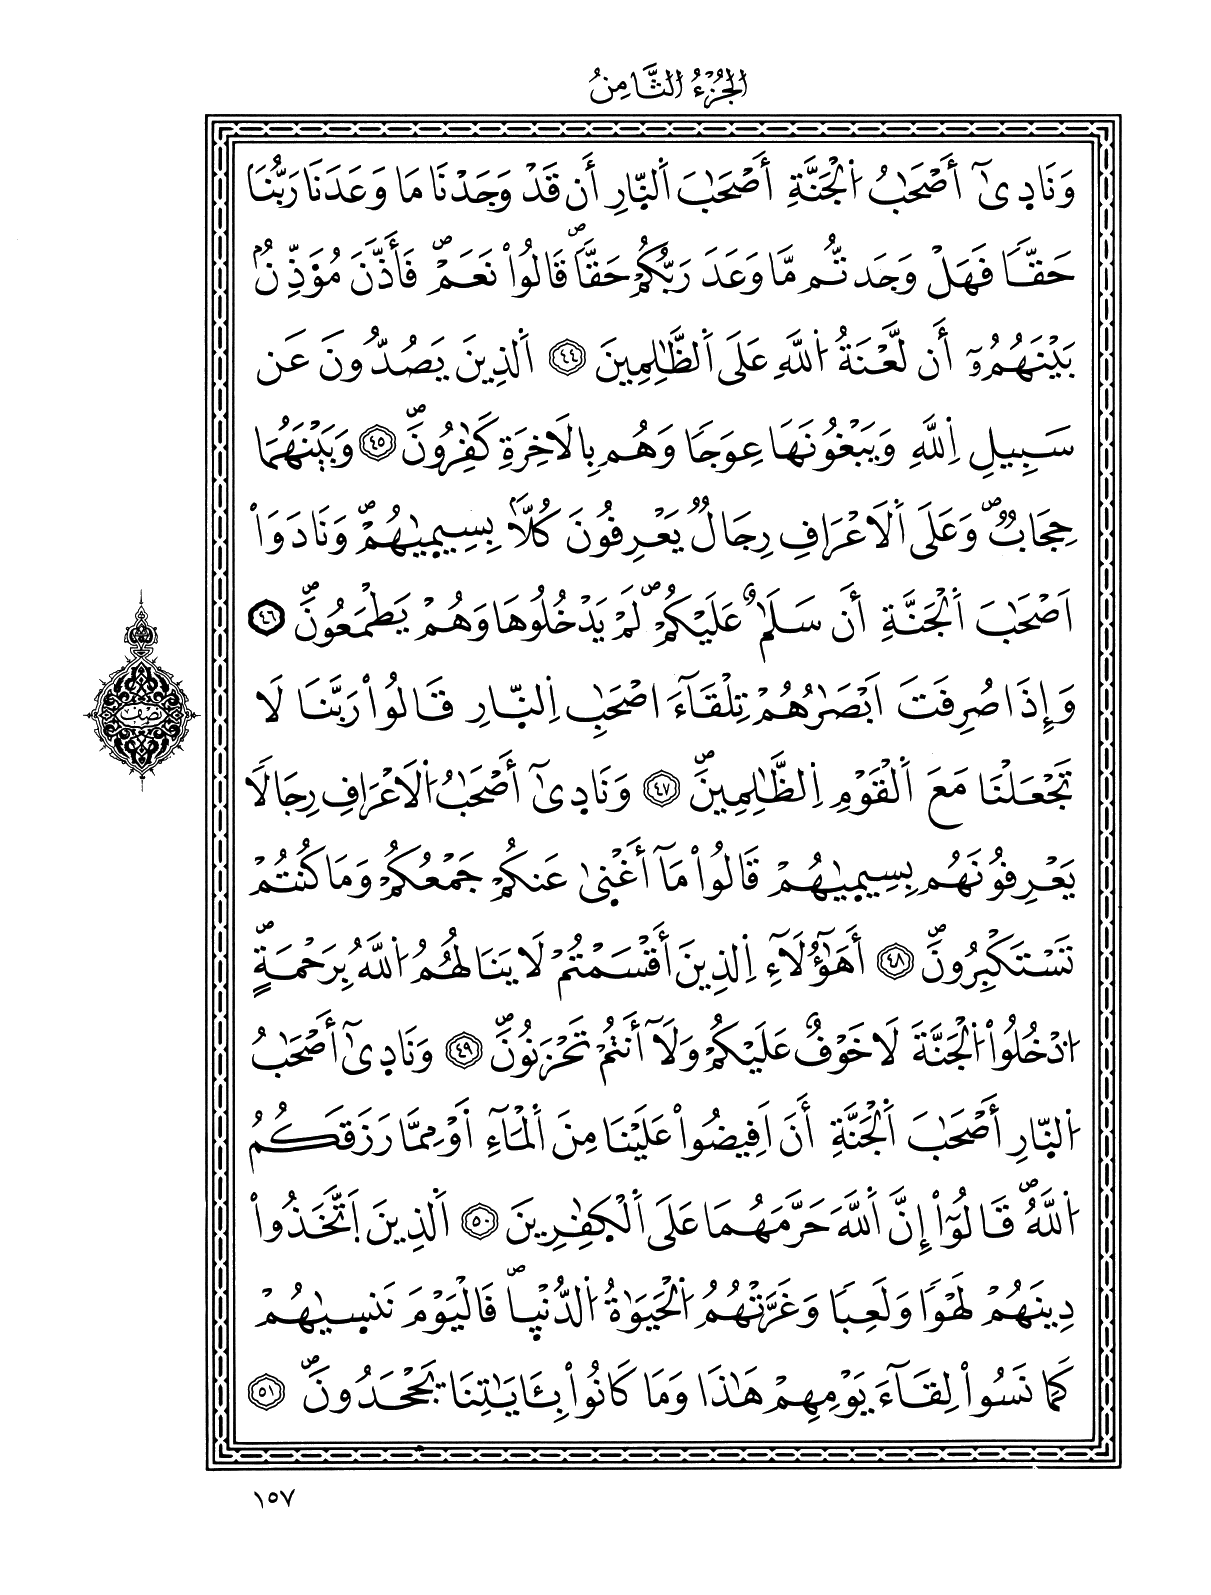 الجزء الثامن
وَنَادِىٰٓ أَصْحَٰبُ اُ۬لْجَنَّةِ أَصْحَٰبَ اَ۬لنّ۪ارِ أَن قَدْ وَجَدْنَا مَا وَعَدَنَا رَبُّنَا
حَقّاٗ فَهَلْ وَجَدتُّم مَّا وَعَدَ رَبُّكُمْ حَقّاٗۖ قَالُواْ نَعَمْۖ فَأَذَّنَ مُؤَذِّنُۢ
بَيْنَهُمُۥٓ أَن لَّعْنَةُ اُ۬للَّهِ عَلَى اَ۬لظَّٰلِمِينَ ٤٤ اَ۬لذِينَ يَصُدُّونَ عَن
سَبِيلِ اِ۬للَّهِ وَيَبْغُونَهَا عِوَجاٗ وَهُم بِالَاخِرَةِ كَٰفِرُونَۖ ٤٥ وَبَيْنَهُمَا
حِجَابٞۖ وَعَلَى اَ۬لَاعْرَافِ رِجَالٞ يَعْرِفُونَ كُلّاَۢ بِسِيم۪يٰهُمْۖ وَنَادَوَاْ
اَصْحَٰبَ اَ۬لْجَنَّةِ أَن سَلَٰمٌ عَلَيْكُمْۖ لَمْ يَدْخُلُوهَا وَهُمْ يَطْمَعُونَۖ ٤٦
وَإِذَا صُرِفَتَ اَبْصَٰرُهُمْ تِلْقَآءَ اصْحَٰبِ اِ۬لنّ۪ارِ قَالُواْ رَبَّنَا لَا
تَجْعَلْنَا مَعَ اَ۬لْقَوْمِ اِ۬لظَّٰلِمِينَۖ ٤٧ وَنَادِىٰٓ أَصْحَٰبُ اُ۬لَاعْرَافِ رِجَالاٗ
يَعْرِفُونَهُم بِسِيم۪يٰهُمْ قَالُواْ مَآ أَغْن۪ىٰ عَنكُمْ جَمْعُكُمْ وَمَا كُنتُمْ
تَسْتَكْبِرُونَۖ ٤٨ أَهَٰٓؤُلَآءِ اِ۬لذِينَ أَقْسَمْتُمْ لَا يَنَالُهُمُ اُ۬للَّهُ بِرَحْمَةٍۖ
اُ۟دْخُلُواْ اُ۬لْجَنَّةَ لَا خَوْفٌ عَلَيْكُمْ وَلَآ أَنتُمْ تَحْزَنُونَۖ ٤٩ وَنَادِىٰٓ أَصْحَٰبُ
اُ۬لنّ۪ارِ أَصْحَٰبَ اَ۬لْجَنَّةِ أَنَ اَفِيضُواْ عَلَيْنَا مِنَ اَ۬لْمَآءِ اَوْ مِمَّا رَزَقَكُمُ
اُ۬للَّهُۖ قَالُوٓاْ إِنَّ اَ۬للَّهَ حَرَّمَهُمَا عَلَى اَ۬لْكٰ۪فِرِينَ ٥٠ اَ۬لذِينَ اَ۪تَّخَذُواْ
دِينَهُمْ لَهْواٗ وَلَعِباٗ وَغَرَّتْهُمُ اُ۬لْحَيَوٰةُ اُ۬لدُّنْي۪اۖ فَالْيَوْمَ نَنس۪يٰهُمْ
كَمَا نَسُواْ لِقَآءَ يَوْمِهِمْ هَٰذَا وَمَا كَانُواْ بِـَٔايَٰتِنَا يَجْحَدُونَۖ ٥١
نصف
١٥٧